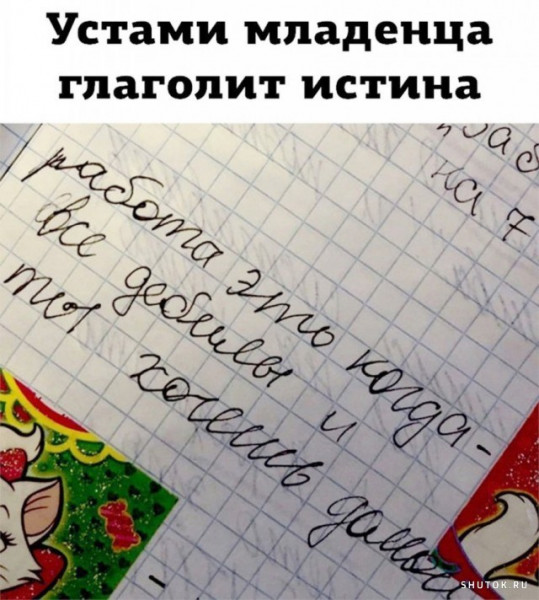 Устами младенца
глаголит истина
на 7
работа это когда-
все дебилы и
ты хочешь домой
SHUTOK.RU